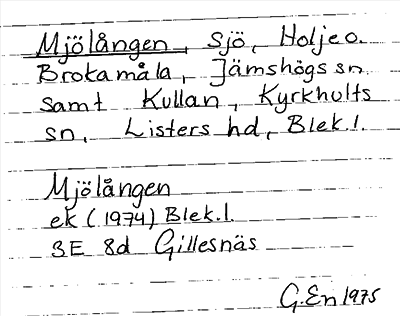 Mjölången, sjö, Holje o.
Brokamåla, Jämshögs sn,
samt Kullan, Kyrkhults
sn, Listers hd, Blek.l.
Mjölången
ek (1974) Blek.l.
3E 8d Gillesnäs
G.En 1975